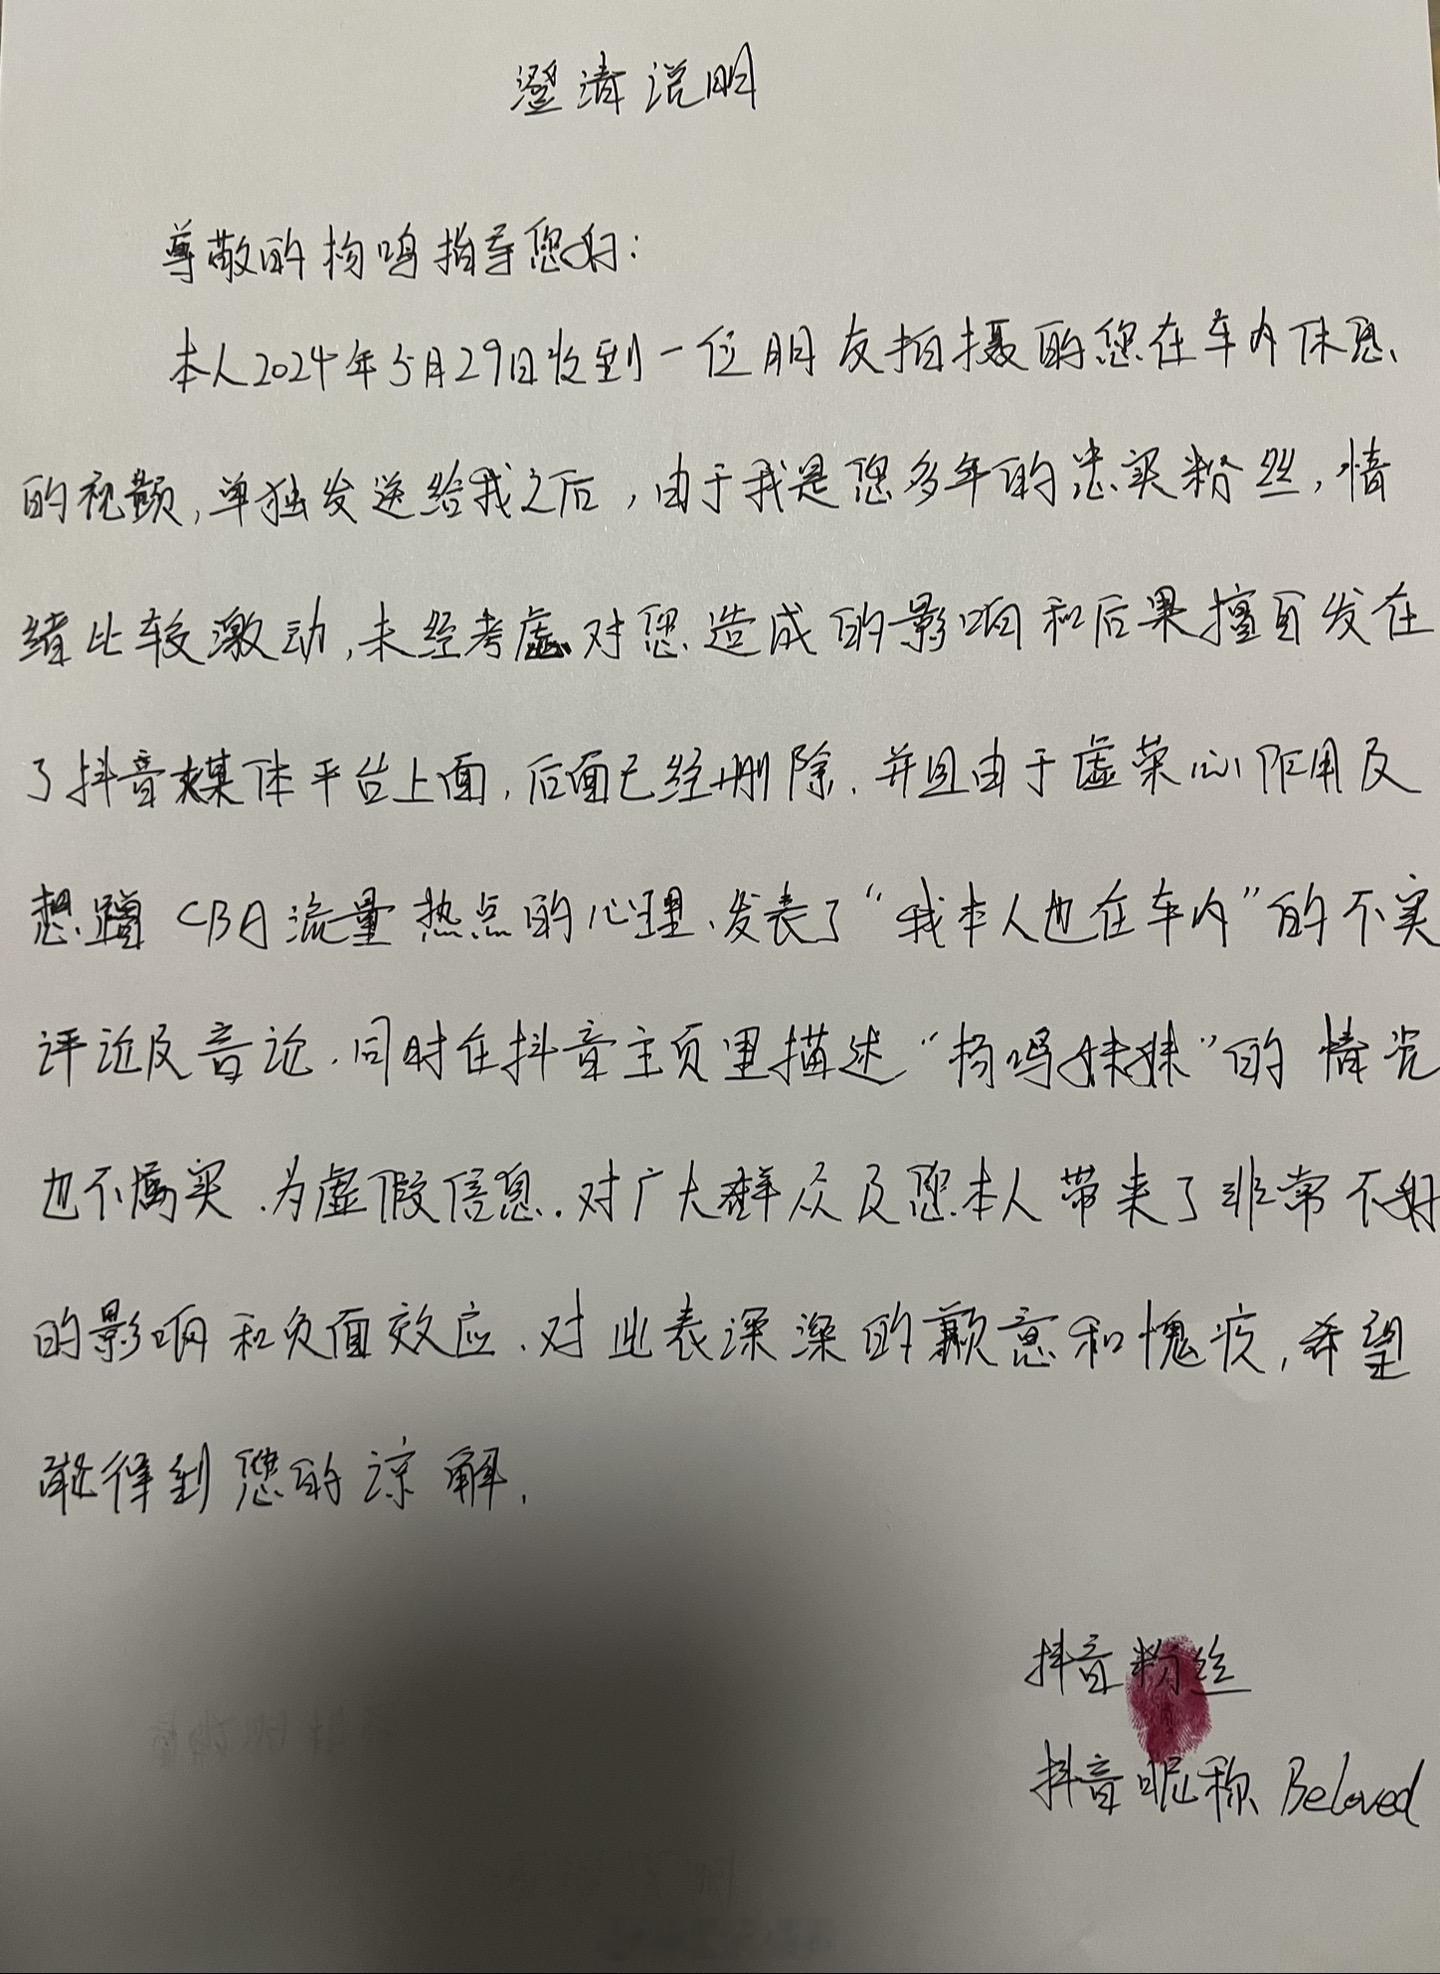 澄清说明
尊敬的杨鸣指导您好:
本人2024年5月29日收到一位朋友拍摄的您在车内休息
的视频,单独发送给我之后,由于我是您多年的忠实粉丝,情
绪比较激动,未经考虑对您造成的影响和后果擅自发在
了抖音媒体平台上面,后面已经删除,并且由于虚荣心作用及
想蹭CBA流量热点的心理,发表了“我本人也在车内”的不实
评论及言论,同时在抖音主页里描述“杨鸣妹妹”的情况
也不属实,为虚假信息.对广大群众及您本人带来了非常不好
的影响和负面效应,对此表深深的歉意和愧疚,希望
能得到您的谅解.
抖音粉丝
抖音昵称 Beloved